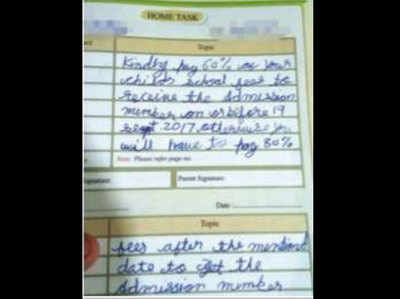 HOME TASK
Topic
Kindly pay 60% as your
child's school fees to
receive the admission
member on or before 19
Sept 2017, otherwise you
will have to pay 80%
Note: Please refer page no.
Signature:
Parent Signature:
Date :
Topic
fees after the mentiond
date to get the
admission member